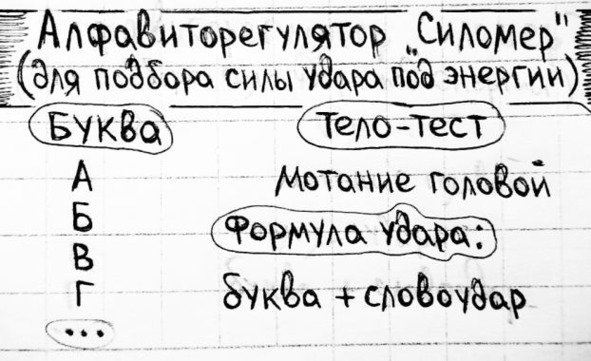 Алфавиторегулятор "Силомер"
(для подбора силы удара под энергии)
Буква Тело-тест
А Мотание головой
Б Формула удара:
В
Г буква + словоудар
...